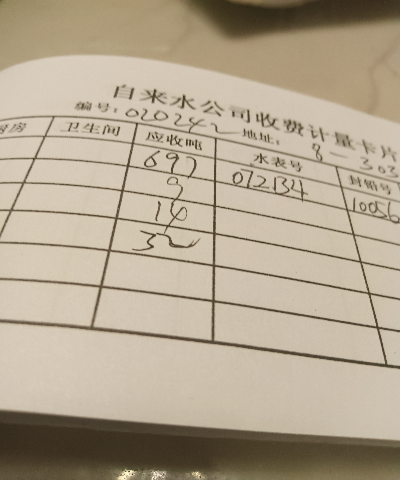 自来水公司收费计量卡片
编号:020242 地址: 8-303
厨房 卫生间 应收吨 水表号 封铅号
697 012134 10056
9
14
32